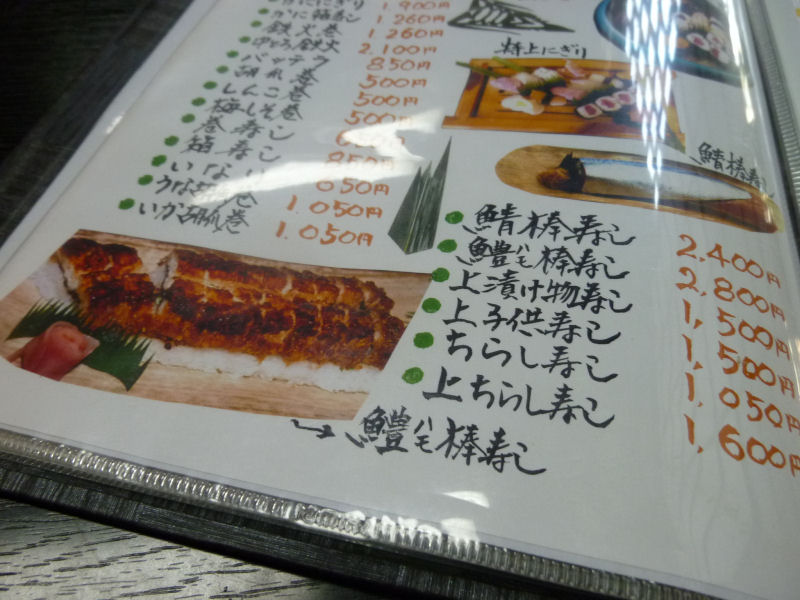 かににぎり 1.900円
かに箱寿し 1260円
鉄火巻 1260円
中とろ鉄火 2.100円
バッテラ 850円
胡瓜巻 500円
しんこ巻 500円
梅しそ巻 500円
巻寿し
箱寿し 850円
いなり 050円
うな胡瓜巻 1.050円
いか胡瓜巻 1.050円
特上にぎり
鯖棒寿し
鯖棒寿し 2,400円
鱧ハモ棒寿し 2,800円
上漬け物寿し 1,500円
上子供寿し 1,500円
ちらし寿し 1,050円
上ちらし寿し 1,600円
鱧ハモ棒寿し